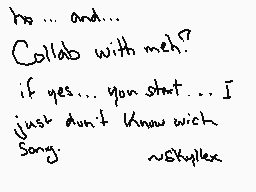 ho... and...
Collab with meh?
if yes... you start... I
just don't know wich
song.
~Skyllex